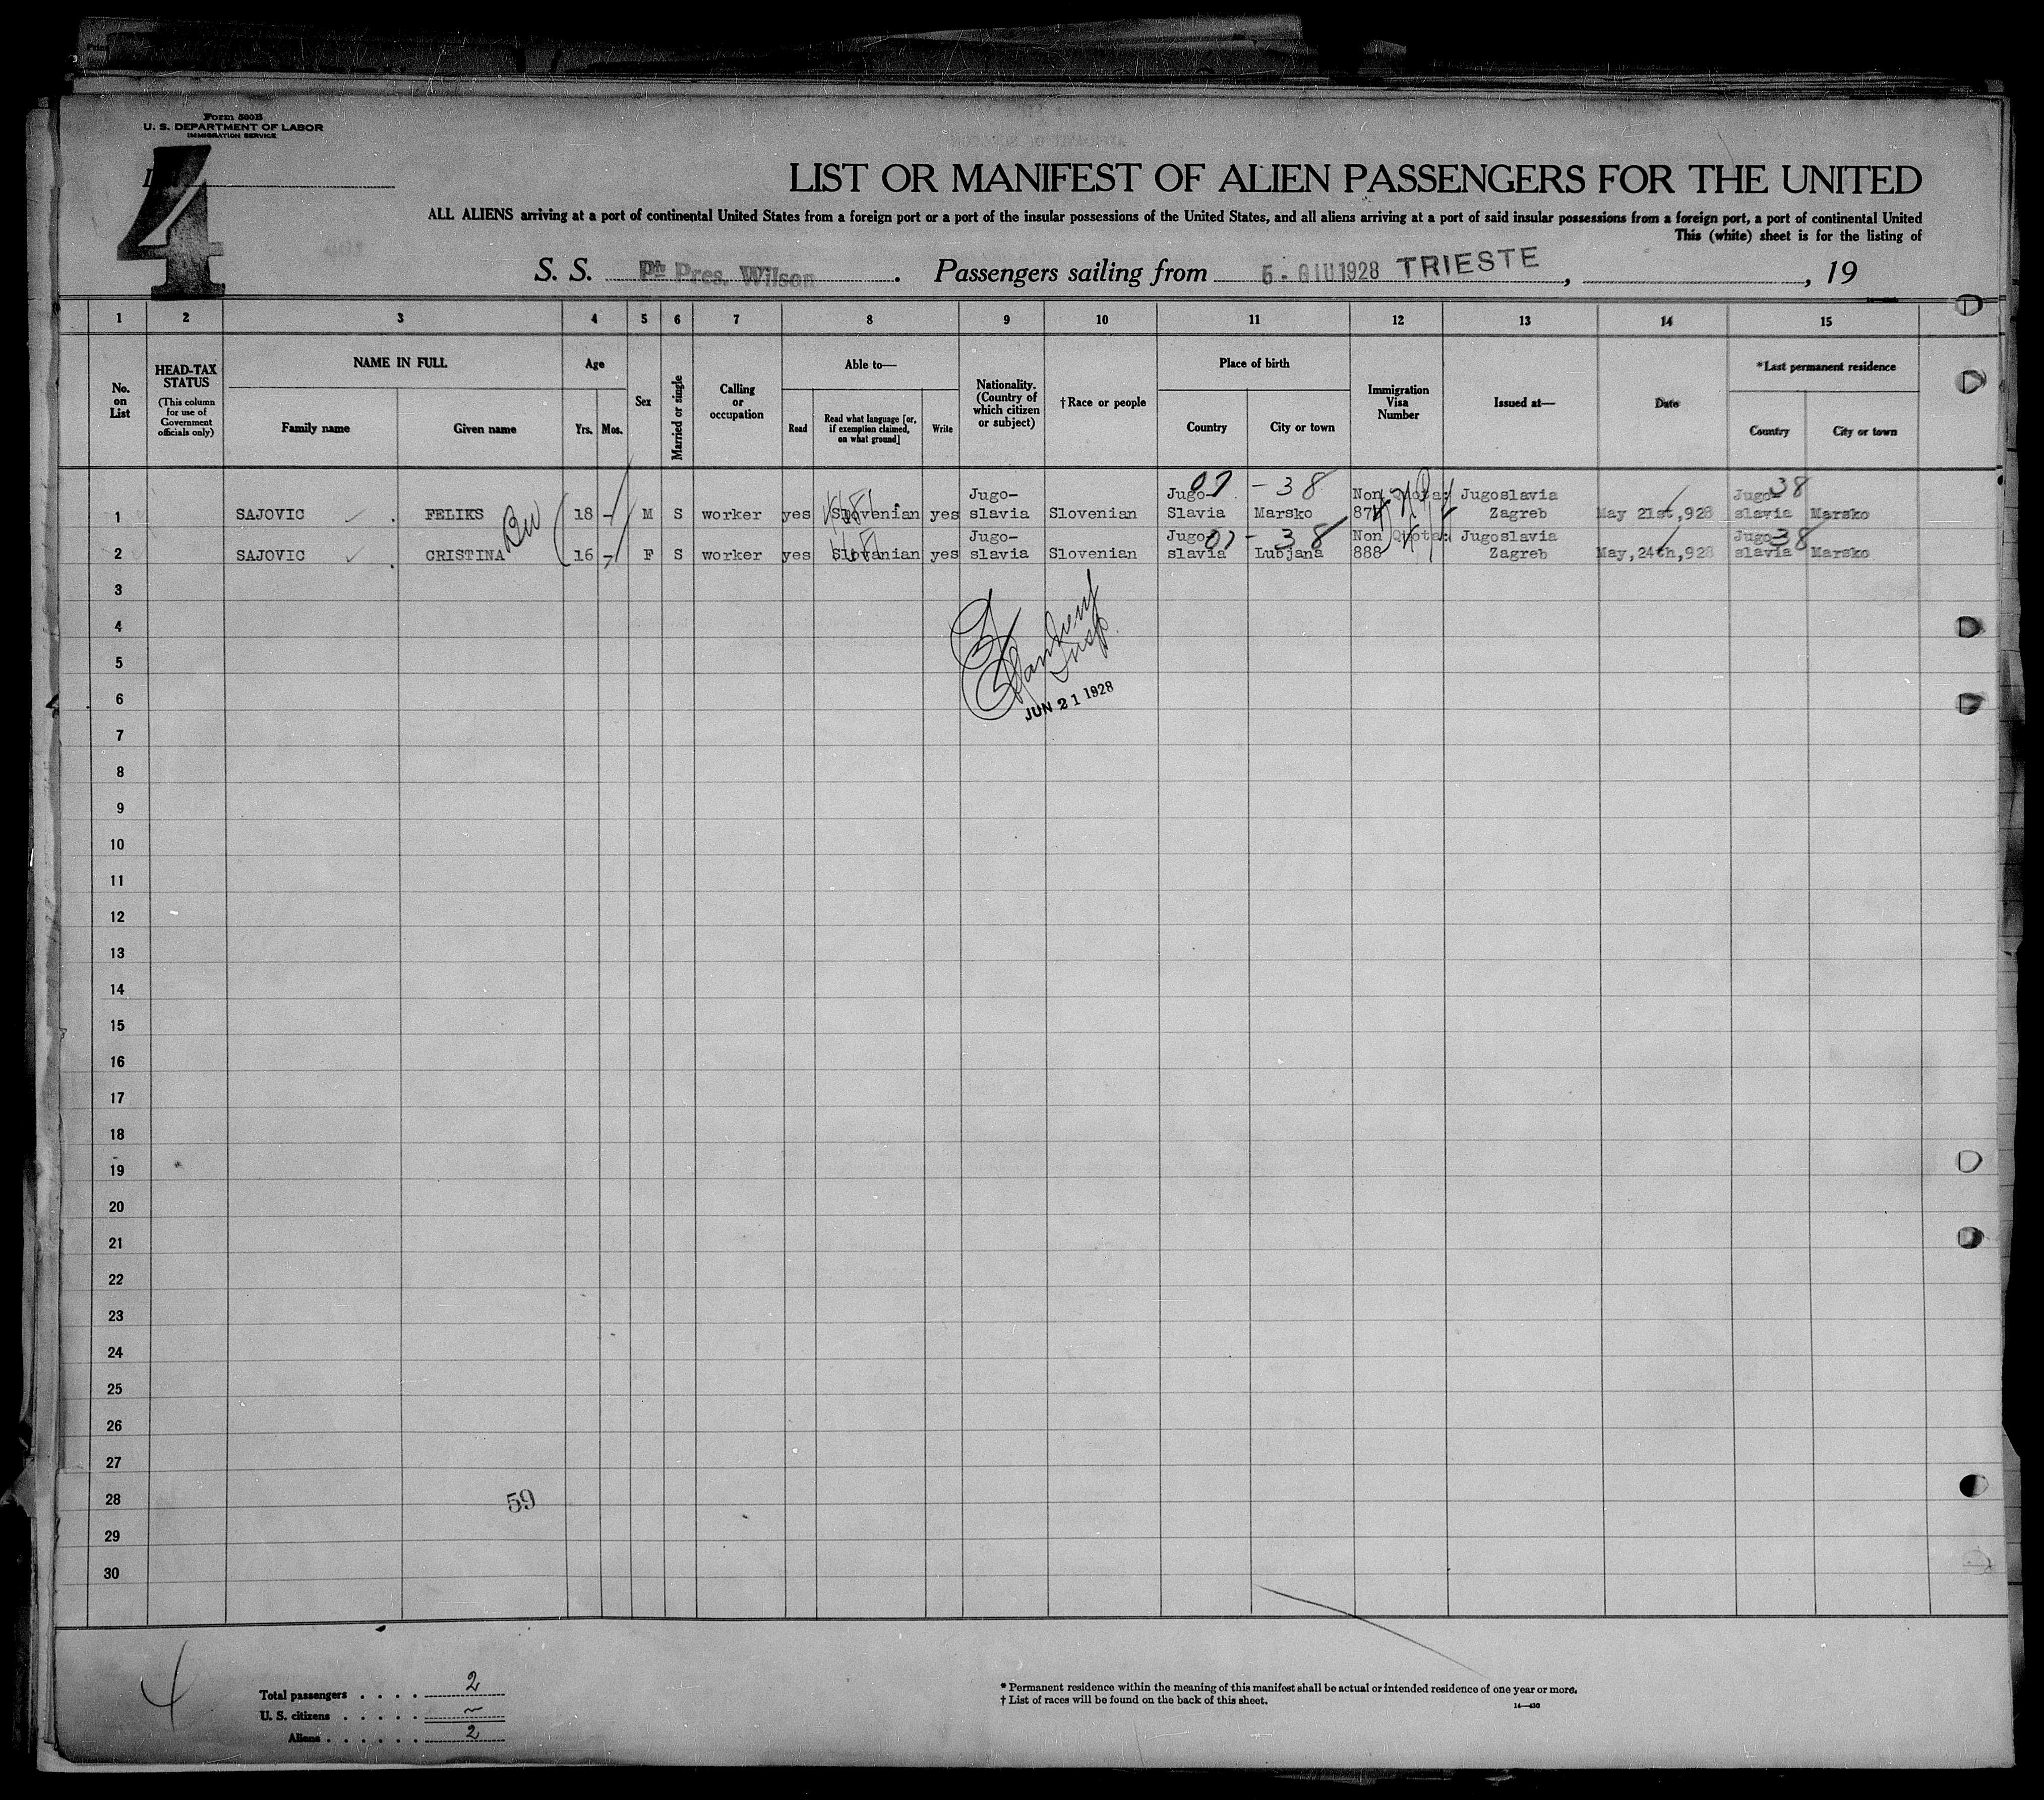 Form 500B
U. S. DEPARTMENT OF LABOR
IMMIGRATION SERVICE
4
LIST OR MANIFEST OF ALIEN PASSENGERS FOR THE UNITED
ALL ALIENS arriving at a port of continental United States from a foreign port or a port of the insular possessions of the United States, and all aliens arriving at a port of said insular possessions from a foreign port, a port of continental United
This (white) sheet is for the listing of
S. S. Pres. Wilson. Passengers sailing from 5 - GIU 1928 TRIESTE, , 19
1 2 3 4 5 6 7 8 9 10 11 12 13 14 15
No. on List
HEAD-TAX STATUS
(This column for use of Government officials only)
NAME IN FULL
Family name Given name
Age
Yrs. Mos.
Sex
Married or single
Calling or occupation
Able to—
Read
Read what language [or, if exemption claimed, on what ground]
Write
Nationality. (Country of which citizen or subject)
†Race or people
Place of birth
Country City or town
Immigration Visa Number
Issued at—
Date
*Last permanent residence
Country City or town
07 - 38 38
Jugo- Jugo- Non Quota: Jugoslavia Jugo-
1 SAJOVIC FELIKS 18 - M S worker yes Slovenian yes slavia Slovenian Slavia Marsko Zagreb May 21st,928 slavia Marsko
07 - 38 38
Jugo- Jugo- Non Quota: Jugoslavia Jugo-
2 SAJOVIC CRISTINA 16 - F S worker yes Slovenian yes slavia Slovenian slavia Lubjana 888 Zagreb May,24th,928 slavia Marsko
3
4
5
6
Insp.
JUN 21 1928
7
8
9
10
11
12
13
14
15
16
17
18
19
20
21
22
23
24
25
26
27
28
59
29
30
4
Total passengers . . . . 2
U. S. citizens . . . . . ~
Aliens . . . . . . 2
* Permanent residence within the meaning of this manifest shall be actual or intended residence of one year or more.
† List of races will be found on the back of this sheet.
14—430